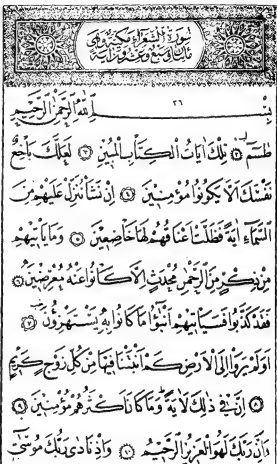 سورة الشعراء مكية وهي
مائتان وسبع وعشرون آية
٢٦
بِسْمِ اللَّهِ الرَّحْمَنِ الرَّحِيمِ
طسم ۝ تِلْكَ آيَاتُ الْكِتَابِ الْمُبِينِ ۝ لَعَلَّكَ بَاخِعٌ
نَفْسَكَ أَلَّا يَكُونُوا مُؤْمِنِينَ ۝ إِنْ نَشَأْ نُنَزِّلْ عَلَيْهِمْ مِنَ
السَّمَاءِ آيَةً فَظَلَّتْ أَعْنَاقُهُمْ لَهَا خَاضِعِينَ ۝ وَمَا يَأْتِيهِمْ
مِنْ ذِكْرٍ مِنَ الرَّحْمَنِ مُحْدَثٍ إِلَّا كَانُوا عَنْهُ مُعْرِضِينَ ۝
فَقَدْ كَذَّبُوا فَسَيَأْتِيهِمْ أَنْبَٰٓؤُا مَا كَانُوا بِهِ يَسْتَهْزِؤُنَ ۝
أَوَلَمْ يَرَوْا إِلَى الْأَرْضِ كَمْ أَنْبَتْنَا فِيهَا مِنْ كُلِّ زَوْجٍ كَرِيمٍ
۝ إِنَّ فِي ذَلِكَ لَآيَةً وَمَا كَانَ أَكْثَرُهُمْ مُؤْمِنِينَ ۝
وَإِنَّ رَبَّكَ لَهُوَ الْعَزِيزُ الرَّحِيمُ ۝ وَإِذْ نَادَى رَبُّكَ مُوسَى